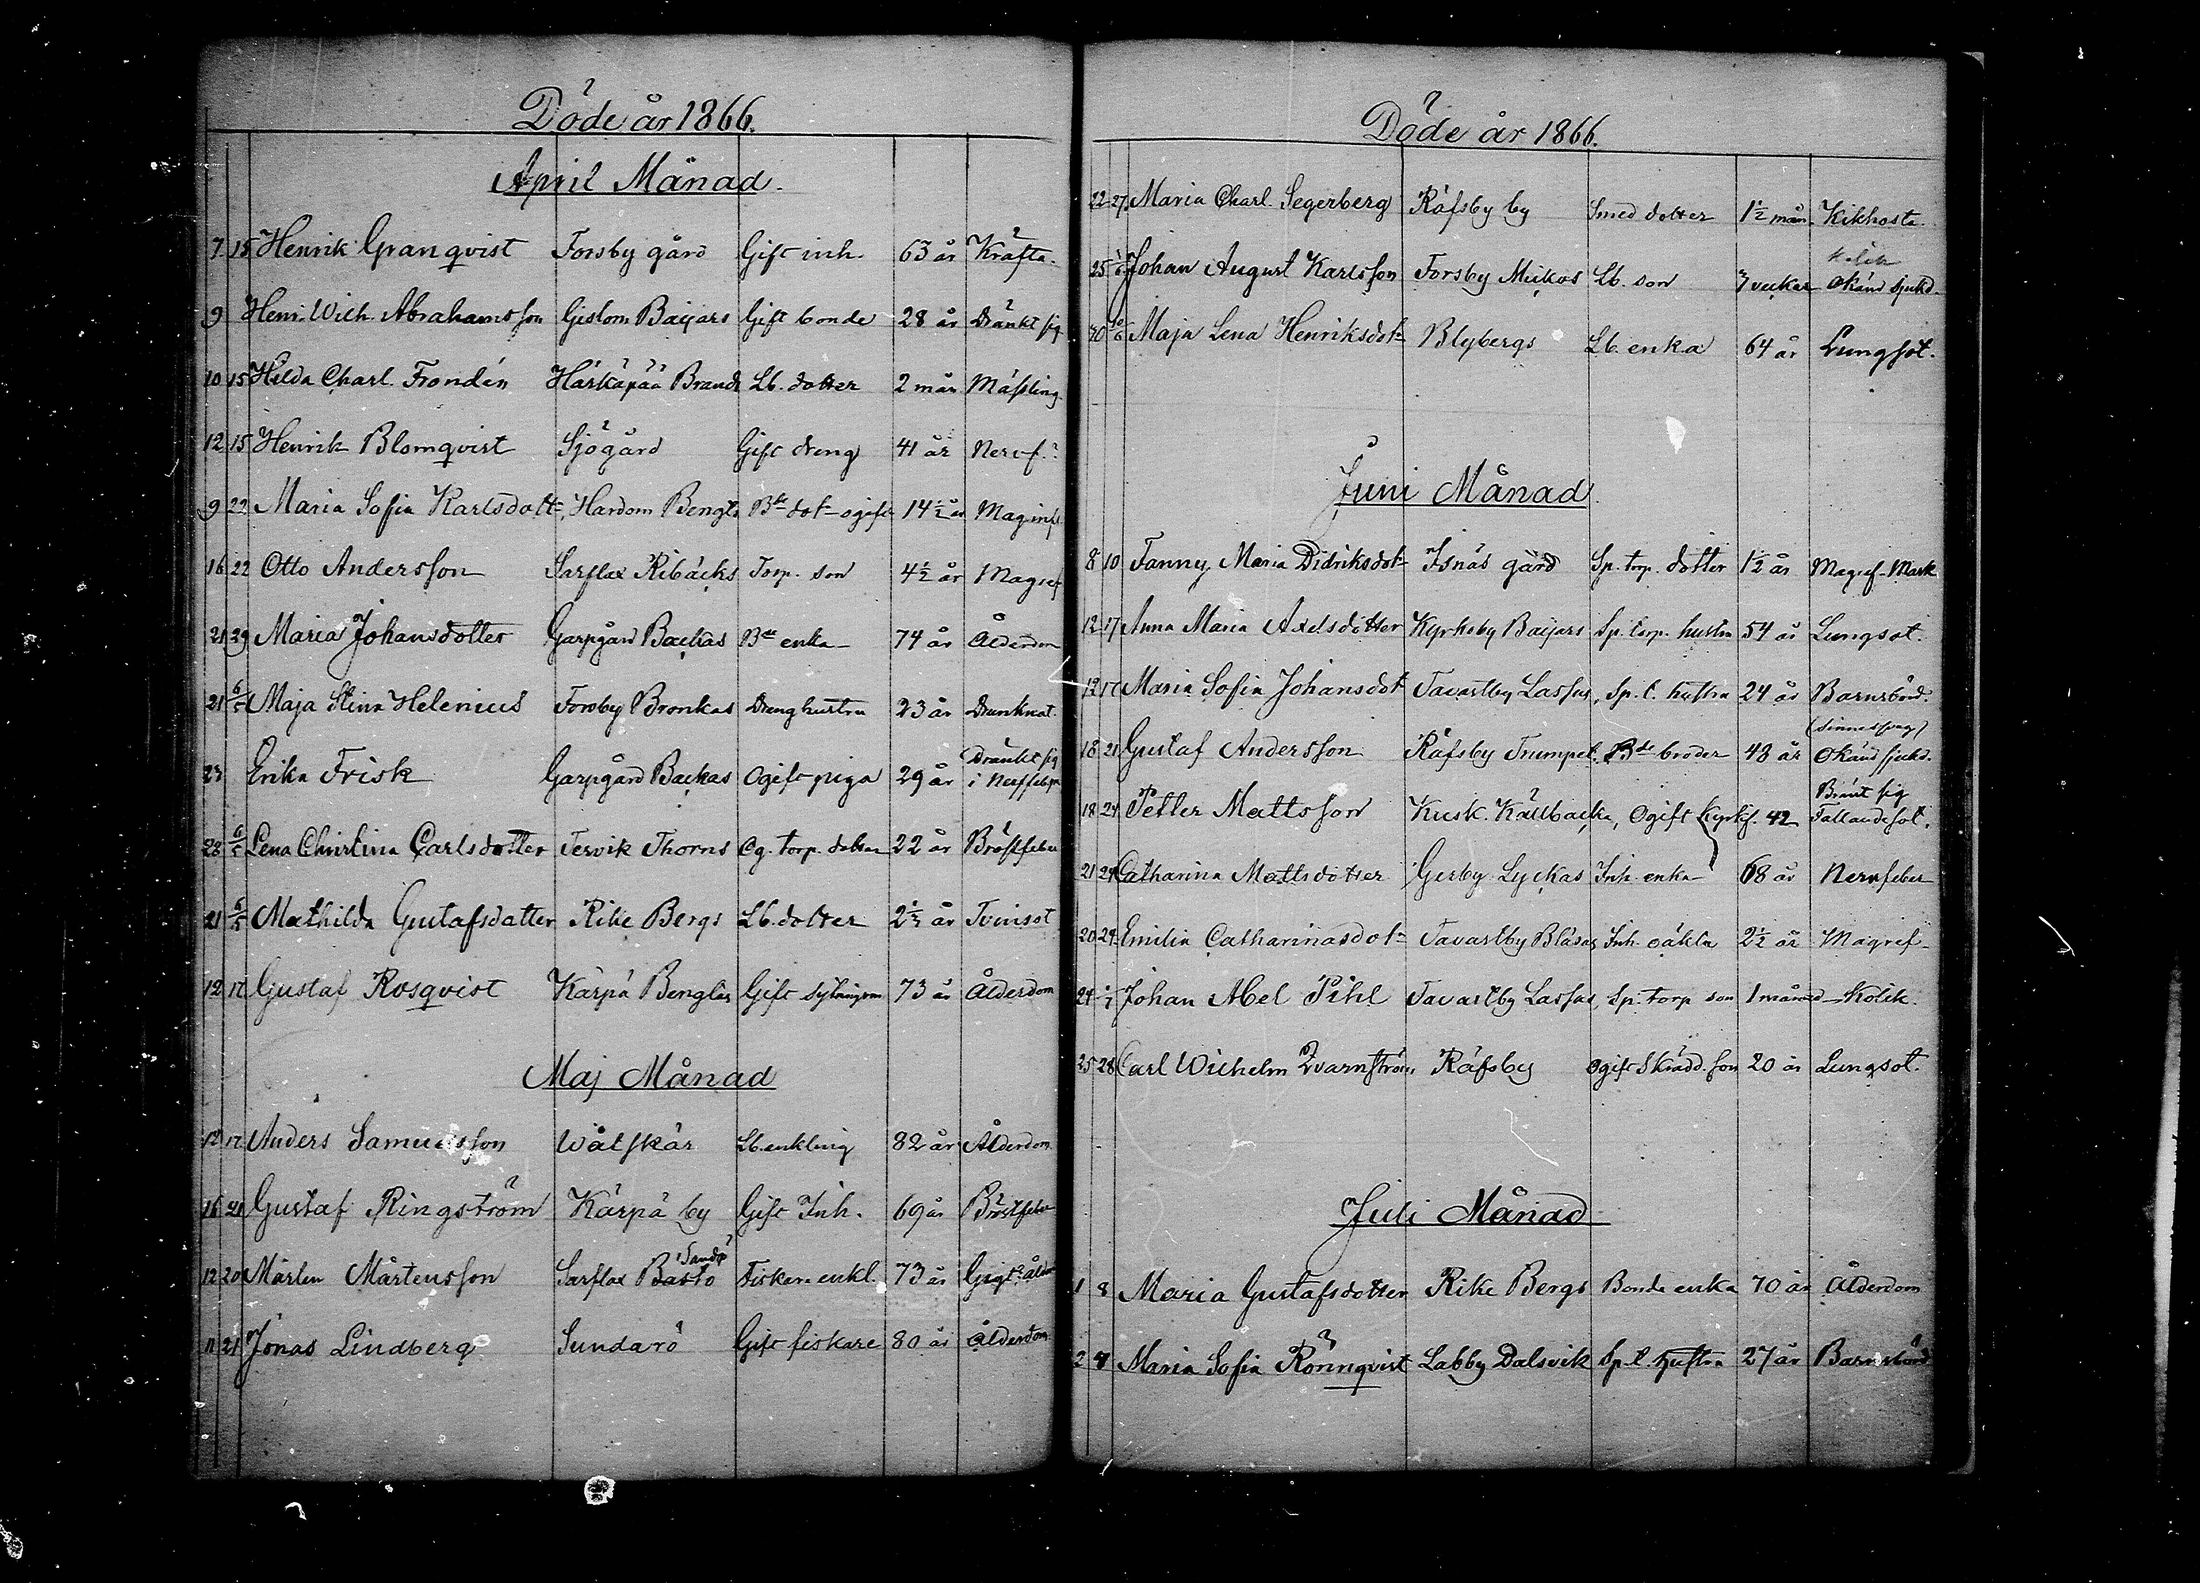 Döde år 1866.
April Månad.
7 15 Henrik Granqvist Forsby gård Gift inh. 63 år Kräfta.
9 Henr. Wilh. Abrahamsson Gislom Baijars Gift bonde 28 år Dränkt sig
10 15 Hilda Charl. Frondén Härkäpää Brands Lb. dotter 2 mån Mässling.
12 15 Henrik Blomqvist Sjögård Gift dreng 41 år Nervf.
9 22 Maria Sofia Karlsdotr Hardom Bengts Bde dotr ogift 14 1/2 år
16 22 Otto Andersson Sarflax Ribäcks Torp. son 4 1/2 år Magref
21 29 Maria Johansdotter Garpgård Backas Bde enka 74 år Ålderdom
21 6/5 Maja Stina Helenius Forsby Bronkas Drenghustru 23 år Drunknat.
23 Erika Frisk Garpgård Backas Ogift piga 29 år Dränkt sig i
28 6/5 Lena Christina Carlsdotter Tervik Thorns Og. torp. dotter 22 år Bröstfeber
21 6/5 Mathilda Gustafsdotter Rike Bergs Lb. dotter 2 1/2 år Tvinsot
12 Gustaf Rosqvist Kärpä Bengtas Gift 73 år Ålderdom
Maj Månad
12 17 Anders Samuelsson Wåtskär Lb. enkling 82 år Ålderdom
16 21 Gustaf Ringström Kärpä by Gift Inh. 69 år Bröstfeber
12 20 Mårten Mårtensson Sarflax Bastö Sandö Fiskare enkl. 73 år Gigt.
11 21 Jonas Lindberg Sundarö Gift fiskare 80 år Ålderdom
Döde år 1866.
22 27 Maria Charl. Segerberg Räfsby by Smed dotter 1 1/2 mån. Kikhosta.
kolik
25 Johan August Karlsson Forsby Mickos Lb. son 7 veckor Okänd sjukd.
30 10/6 Maja Lena Henriksdotr Blybergs Lb. enka 64 år Lungsot.
Juni Månad.
8 10 Fanny Maria Didriksdotr Isnäs gård Sp. torp. dotter 1 1/2 år Magref-Mask
12 17 Anna Maria Axelsdotter Kyrkoby Baijars Sp. torp. hustru 54 år Lungsot.
12 17 Maria Sofia Johansdotr Tavastby Lassas, Sp. t. hustru 24 år Barnsbörd.
18 21 Gustaf Andersson Räfsby Trumpet. Bde broder 43 år (Sinnessvag) Okänd sjukd.
18 24 Petter Mattsson Kusk. Källbacka, Ogift 42 Bränt sig Fallandesot.
21 24 Catharina Mattsdotter Gerby Lyckas Inh. enka 68 år Nervfeber
20 24 Emilia Catharinasdotr Tavastby Blåsas Inh. oäkta 2 1/2 år Magref.
24 1/7 Johan Abel Pihl Tavastby Lassas, Sp. torp son 1 månad Kolik.
25 28 Carl Wilhelm Qvarnström Räfsby Ogift Skrädd. son 20 år Lungsot.
Juli Månad
1 8 Maria Gustafsdotter Rike Bergs Bonde enka 70 år Ålderdom
2 Maria Sofia Rönnqvist Labby Dalsvik Sp. t. hustru 27 år Barnsbörd